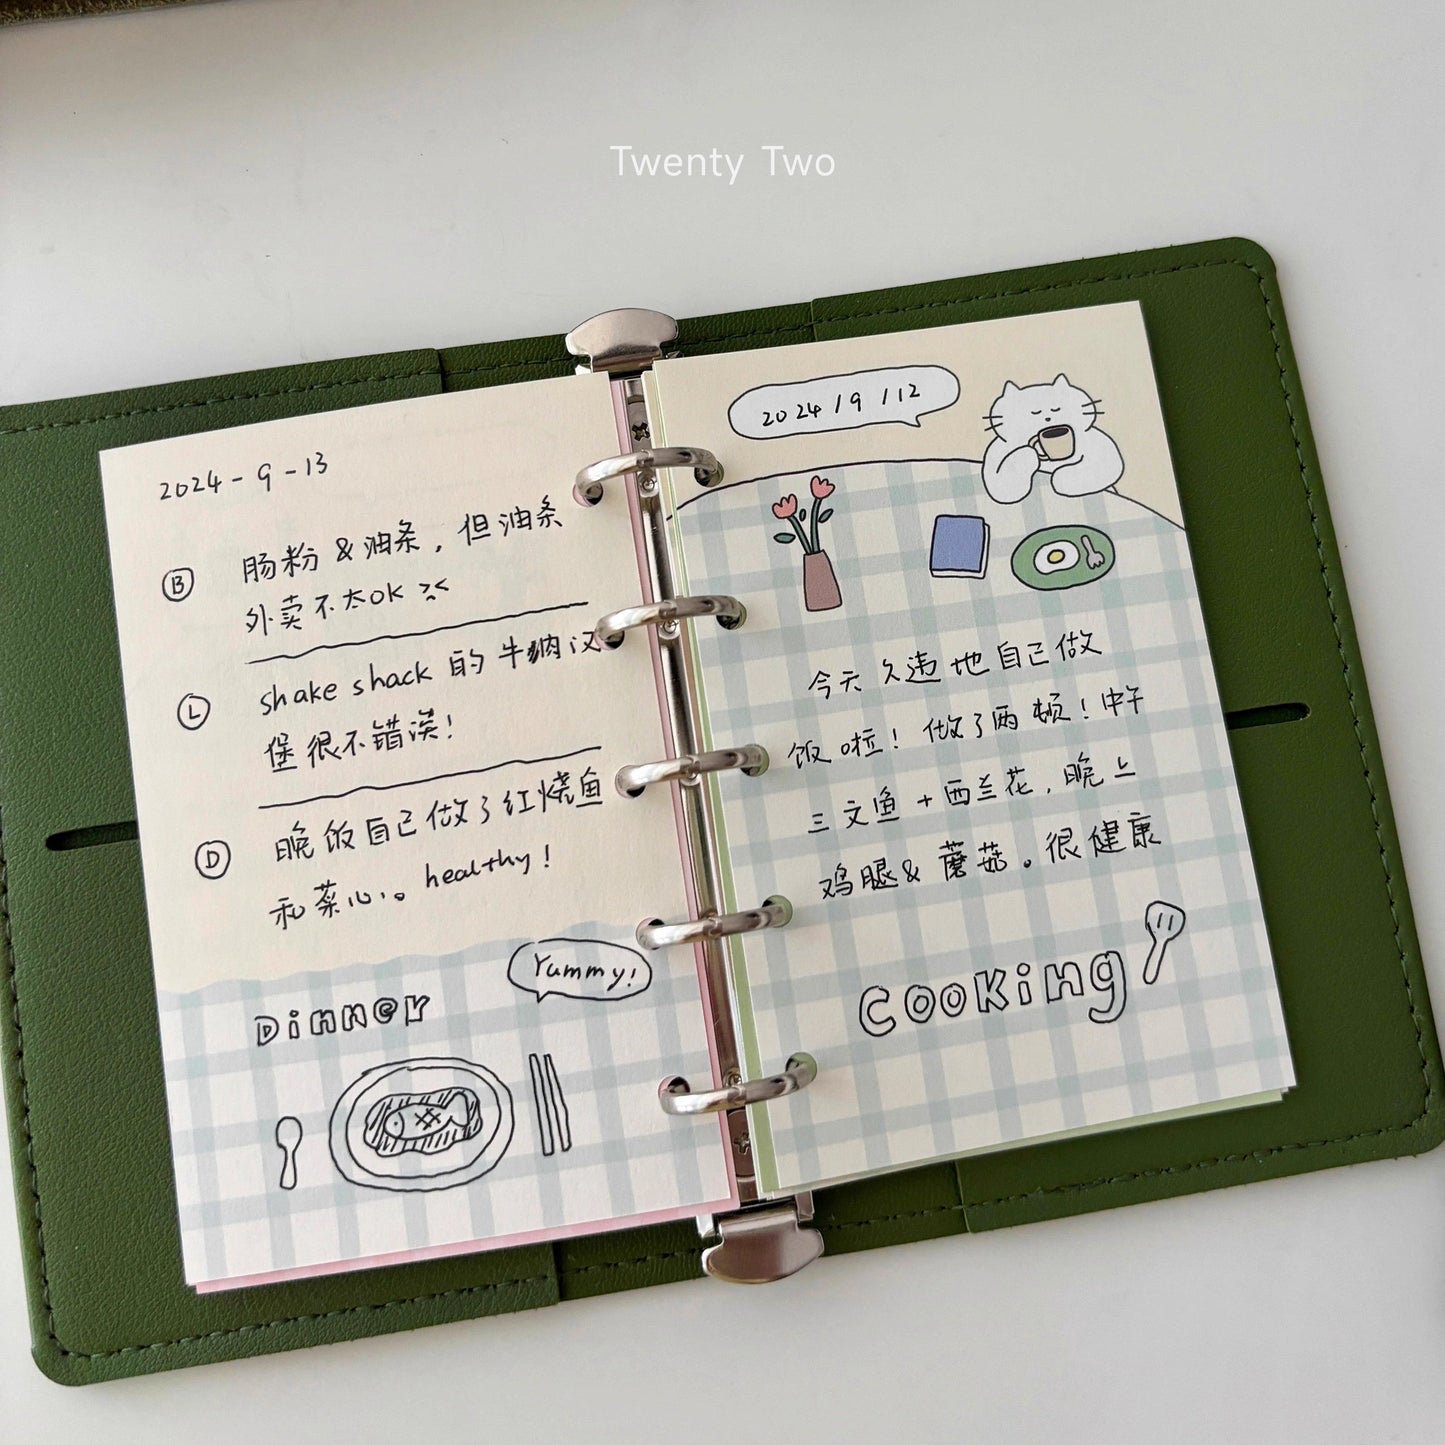 Twenty Two
2024-9-13
B
肠粉 & 油条，但油条
外卖不太OK
L
shake shack 的牛肉汉
堡很不错诶！
D
晚饭自己做了红烧鱼
和菜心。healthy！
Yummy!
Dinner
2024/9/12
今天久违地自己做
饭啦！做了两顿！中午
三文鱼+西兰花，晚上
鸡腿&蘑菇。很健康
Cooking